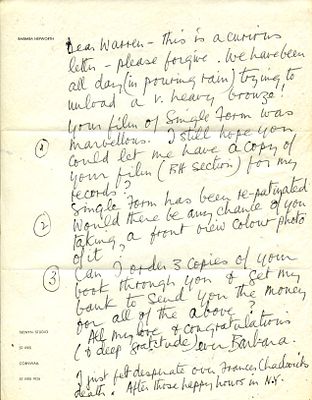 BARBARA HEPWORTH
Dear Warren – this is a curious
letter – please forgive. We have been
all day (in pouring rain) trying to
unload a v. heavy bronze!
Your film of Single Form was
① marvellous. I still hope you
could let me have a copy of
your film (BH section) for my
records?
Single Form has been re-patinated
② Would there be any chance of you
taking, a front view colour photo
of it,
③ Can I order 3 copies of your
book through you & get my
bank to send you the money
for all of the above.
All my love & congratulations
(& deep gratitude) ever Barbara.
TREWYN STUDIO
ST IVES
CORNWALL
ST IVES
I just felt desperate over Frances Chadwick's
death. After those happy hours in N.Y.